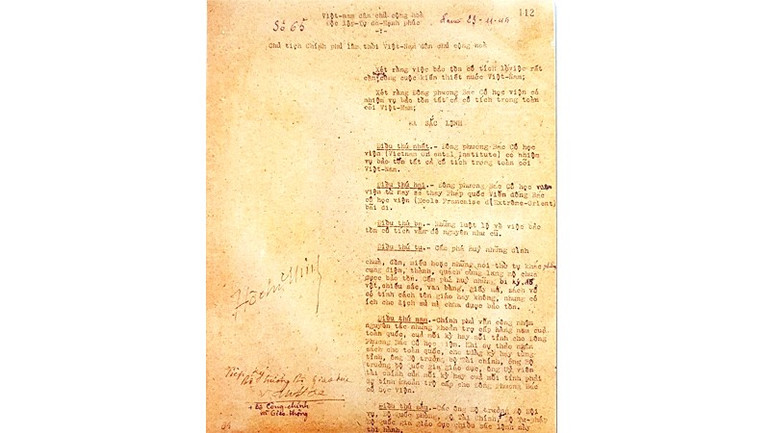 112
Việt-nam dân chủ cộng hoà
Số 65
Độc lập-Tự do-Hạnh phúc
23-11-45
-:-
Chủ tịch chính phủ lâm thời Việt-Nam dân chủ cộng hoà
Xét rằng việc bảo tồn cổ tích là việc rất
cần trong cuộc kiến thiết nước Việt-Nam;
Xét rằng Đông phương Bác Cổ học viện có
nhiệm vụ bảo tồn tất cả cổ tích trong toàn
cõi Việt-Nam;
RA SẮC LỆNH
Điều thứ nhất.- Đông phương Bác Cổ học
viện (Vietnam Oriental Institute) có nhiệm
vụ bảo tồn tất cả cổ tích trong toàn cõi
Việt-Nam.
Điều thứ hai.- Đông phương Bác Cổ học viện
từ nay sẽ thay Pháp quốc Viễn đông Bác
cổ học viện (Ecole Francaise d'Extrême-Orient)
bãi đi.
Điều thứ ba.- Những luật lệ về việc bảo
tồn cổ tích vẫn để nguyên như cũ.
Điều thứ tư.- Cấm phá huỷ những đình
chùa, đền, miếu hoặc những nơi thờ tự khác,
cung điện, thành, quách cùng lăng mộ chưa
được bảo tồn. Cấm phá huỷ những bi ký, đồ
vật, chiếu sắc, văn bằng, giấy má, sách vở
có tính cách tôn giáo hay không, nhưng có
ích cho lịch sử mà chưa được bảo tồn.
Hồ Chí Minh
Điều thứ năm.-Chính phủ vẫn công nhận
nguyên tắc những khoản trợ cấp hàng năm của
toàn quốc, của mỗi kỳ hay mỗi tỉnh cho Đông
Phương Bác Cổ học viện. Khi dự thảo ngân
sách cho toàn quốc, cho từng kỳ hay từng
tỉnh, ông Bộ trưởng bộ Tài chính, ông Bộ
trưởng bộ Quốc gia giáo dục, ông Uỷ viên
tài chính của mỗi kỳ hay của mỗi tỉnh phải
dự tính khoản trợ cấp cho Đông Phương Bác
Cổ học viện.
Tiếp ký
Bộ trưởng Bộ Giáo dục
+ Bộ Công-chính
Giao thông
Điều thứ sáu.- Các ông Bộ trưởng bộ Nội
vụ, bộ Quốc phòng, bộ Tài Chính, bộ Tư-pháp
bộ quốc gia giáo dục chiểu sắc lệnh này
thi hành.